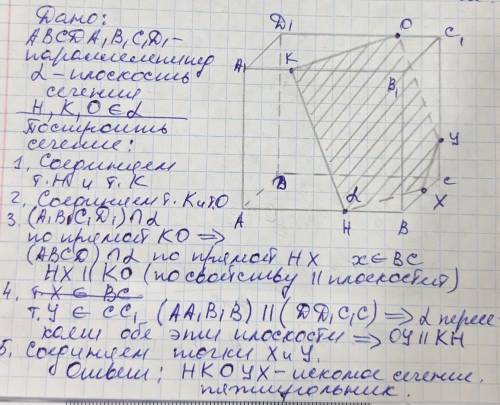 Дано:
ABCDA₁B₁C₁D₁ –
параллелепипед
α – плоскость
сечения
H, K, O ∈ α
Построить
сечение:
1. Соединяем
т. H и т. K
2. Соединяем т. K и т. O
3. (A₁B₁C₁D₁) ∩ α
по прямой KO ⇒
(ABCD) ∩ α по прямой HX x ∈ BC
HX || KO (по свойству || плоскостей)
4. т. X ∈ BC
т. У ∈ CC₁ (AA₁B₁B) || (DD₁C₁C) ⇒ α пересе
каем обе эти плоскости ⇒ OУ || KH
5. Соединяем точки X и У.
Ответ: HKOУX – искомое сечение.
пятиугольник.
Д₁
O
C₁
A₁
K
B₁
У
Д
C
X
α
A
H
B